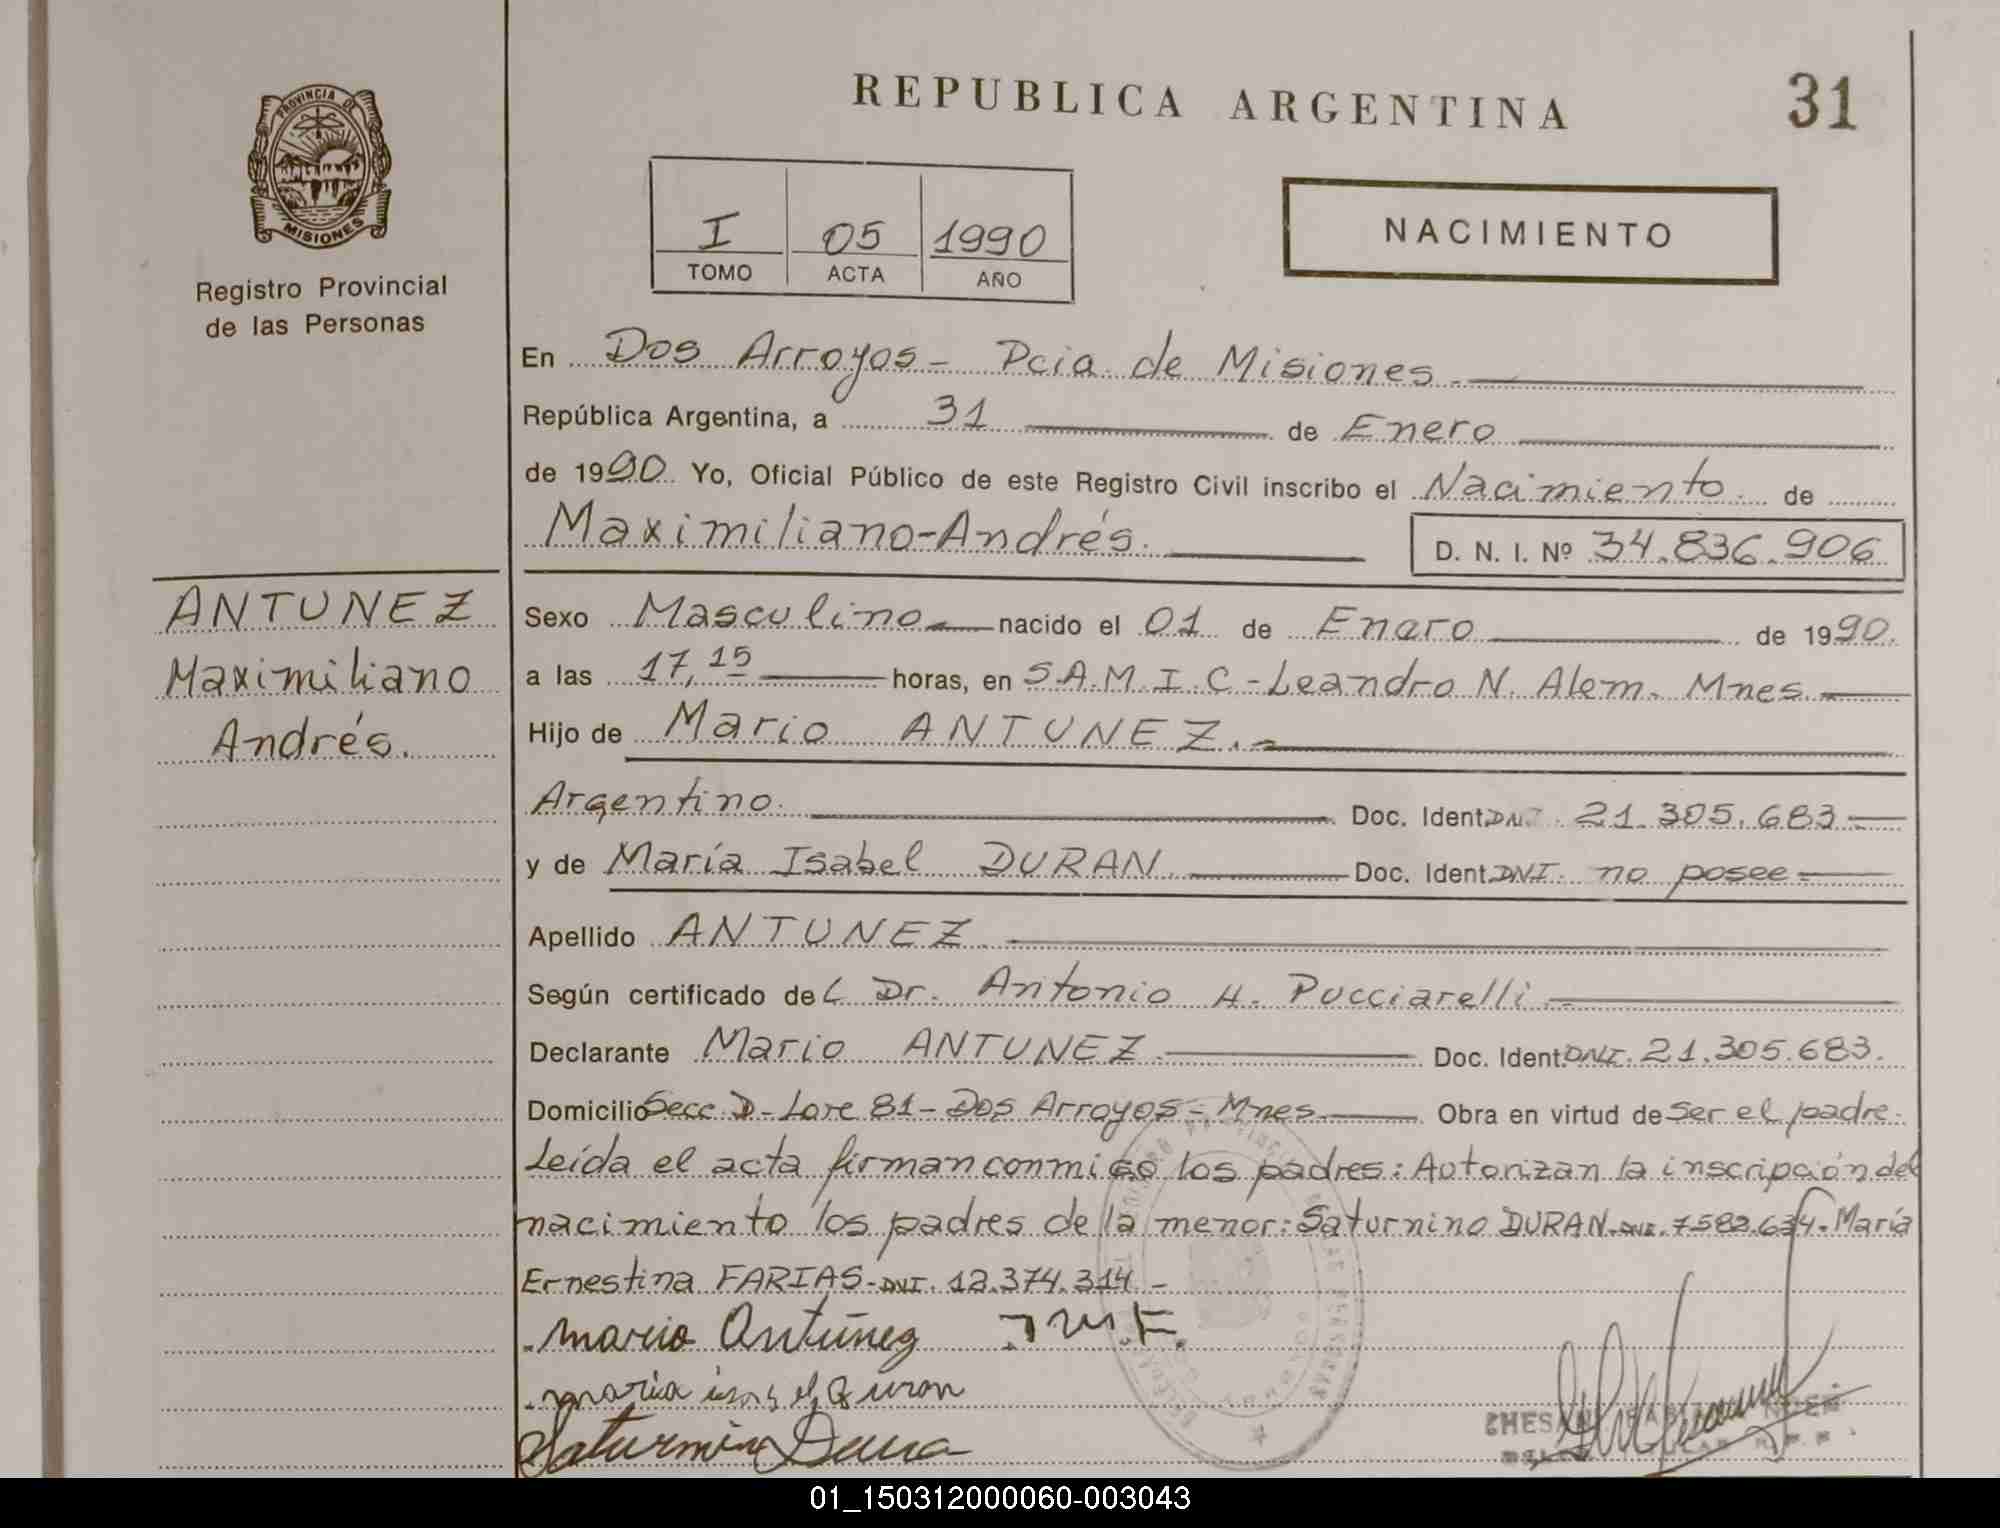 REPUBLICA ARGENTINA
31
PROVINCIA DE
MISIONES
Registro Provincial
de las Personas
I 05 1990
TOMO ACTA AÑO
NACIMIENTO
En Dos Arroyos - Pcia de Misiones
República Argentina, a 31 de Enero
de 1990 Yo, Oficial Público de este Registro Civil inscribo el Nacimiento de
Maximiliano-Andrés. D. N. I. Nº 34.836.906
ANTUNEZ
Maximiliano
Andrés.
Sexo Masculino nacido el 01 de Enero de 1990.
a las 17,15 horas, en S.A.M.I.C - Leandro N. Alem. Mnes.
Hijo de Mario ANTUNEZ.
Argentino. Doc. Ident. DNI 21.305.683
y de María Isabel DURAN Doc. Ident. DNI. no posee
Apellido ANTUNEZ
Según certificado del Dr. Antonio H. Pucciarelli
Declarante Mario ANTUNEZ. Doc. Ident. DNI. 21.305.683.
Domicilio Secc D - Lote 81 - Dos Arroyos - Mnes. Obra en virtud de ser el padre.
Leída el acta firman conmigo los padres: Autorizan la inscripción del
nacimiento los padres de la menor: Saturnino DURAN - DNI. 7.582.634 - María
Ernestina FARIAS - DNI. 12.374.314 -
Mario Antúnez
maria isabel Duran
Saturnin Dura
01_150312000060-003043